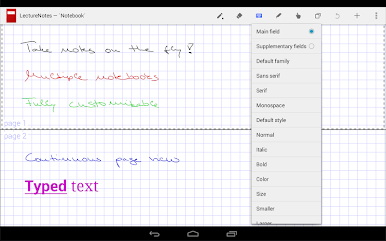 LectureNotes — 'Notebook'
Take notes on the fly!
Multiple notebooks
Fully customizable
page 1
page 2
Continuous page view
Typed text
Main field
Supplementary fields
Default family
Sans serif
Serif
Monospace
Default style
Normal
Italic
Bold
Color
Size
Smaller
Larger